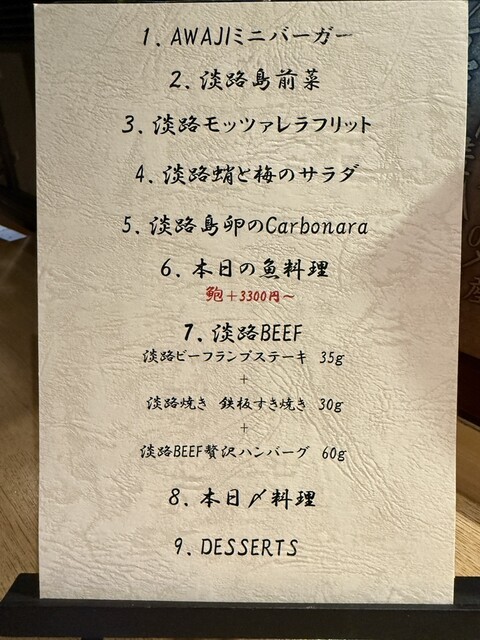 1. AWAJIミニバーガー
2. 淡路島前菜
3. 淡路モッツァレラフリット
4. 淡路蛸と梅のサラダ
5. 淡路島卵のCarbonara
6. 本日の魚料理
鮑+3300円~
7. 淡路BEEF
淡路ビーフランプステーキ 35g
+
淡路焼き 鉄板すき焼き 30g
+
淡路BEEF贅沢ハンバーグ 60g
8. 本日〆料理
9. DESSERTS